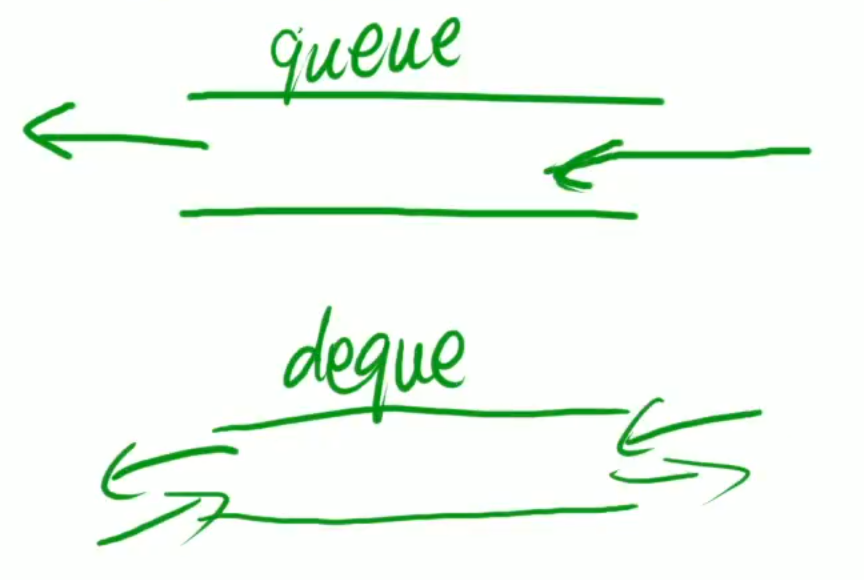 queue
deque